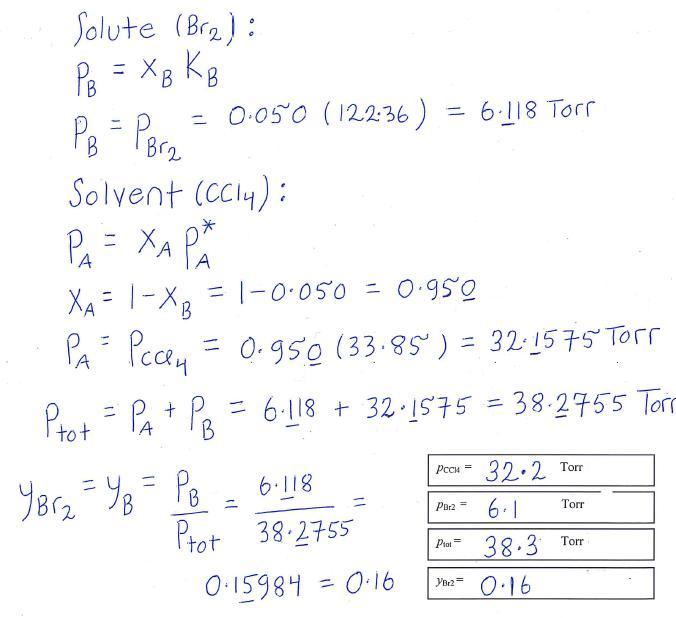 Solute (Br₂):
P_B = X_B K_B
P_B = P_Br₂ = 0.050 (122.36) = 6.118 Torr
Solvent (CCl₄):
P_A = X_A P_A*
X_A = 1 - X_B = 1 - 0.050 = 0.950
P_A = P_CCl₄ = 0.950 (33.85) = 32.1575 Torr
P_tot = P_A + P_B = 6.118 + 32.1575 = 38.2755 Torr
y_Br₂ = y_B = P_B / P_tot = 6.118 / 38.2755 =
0.15984 = 0.16
pCCl4 = 32.2 Torr
pBr2 = 6.1 Torr
ptot = 38.3 Torr
yBr2 = 0.16